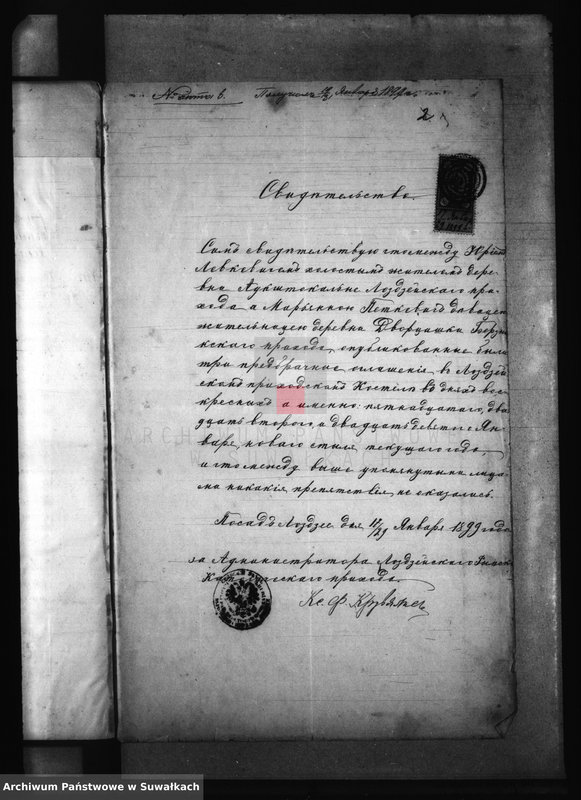 № 6. Получилъ Января 1899 г.
2
Свидѣтельство.
Симъ свидѣтельствую что между
Левкевичемъ холостымъ жителемъ дере-
вни Лоздзейскаго при-
хода а Марьянною Петкевичъ
жительницею деревни
скаго прихода, опубликованные были
три предбрачные оглашенія, въ Лоздзей-
скомъ приходскомъ Костелѣ въ дняхъ вос-
кресныхъ а именно: пятнадцатаго, два-
дцать втораго, а двадцать девятаго Ян-
варя, новаго стиля текущаго года,
и что между выше упомянутыми лица-
ми никакія препятствія, не оказались.
Посадъ Лоздзее дня 17/29 Января 1899 года
за Администратора Лоздзейскаго Римско
Католическаго прихода
Кс. Ф.
Archiwum Państwowe w Suwałkach